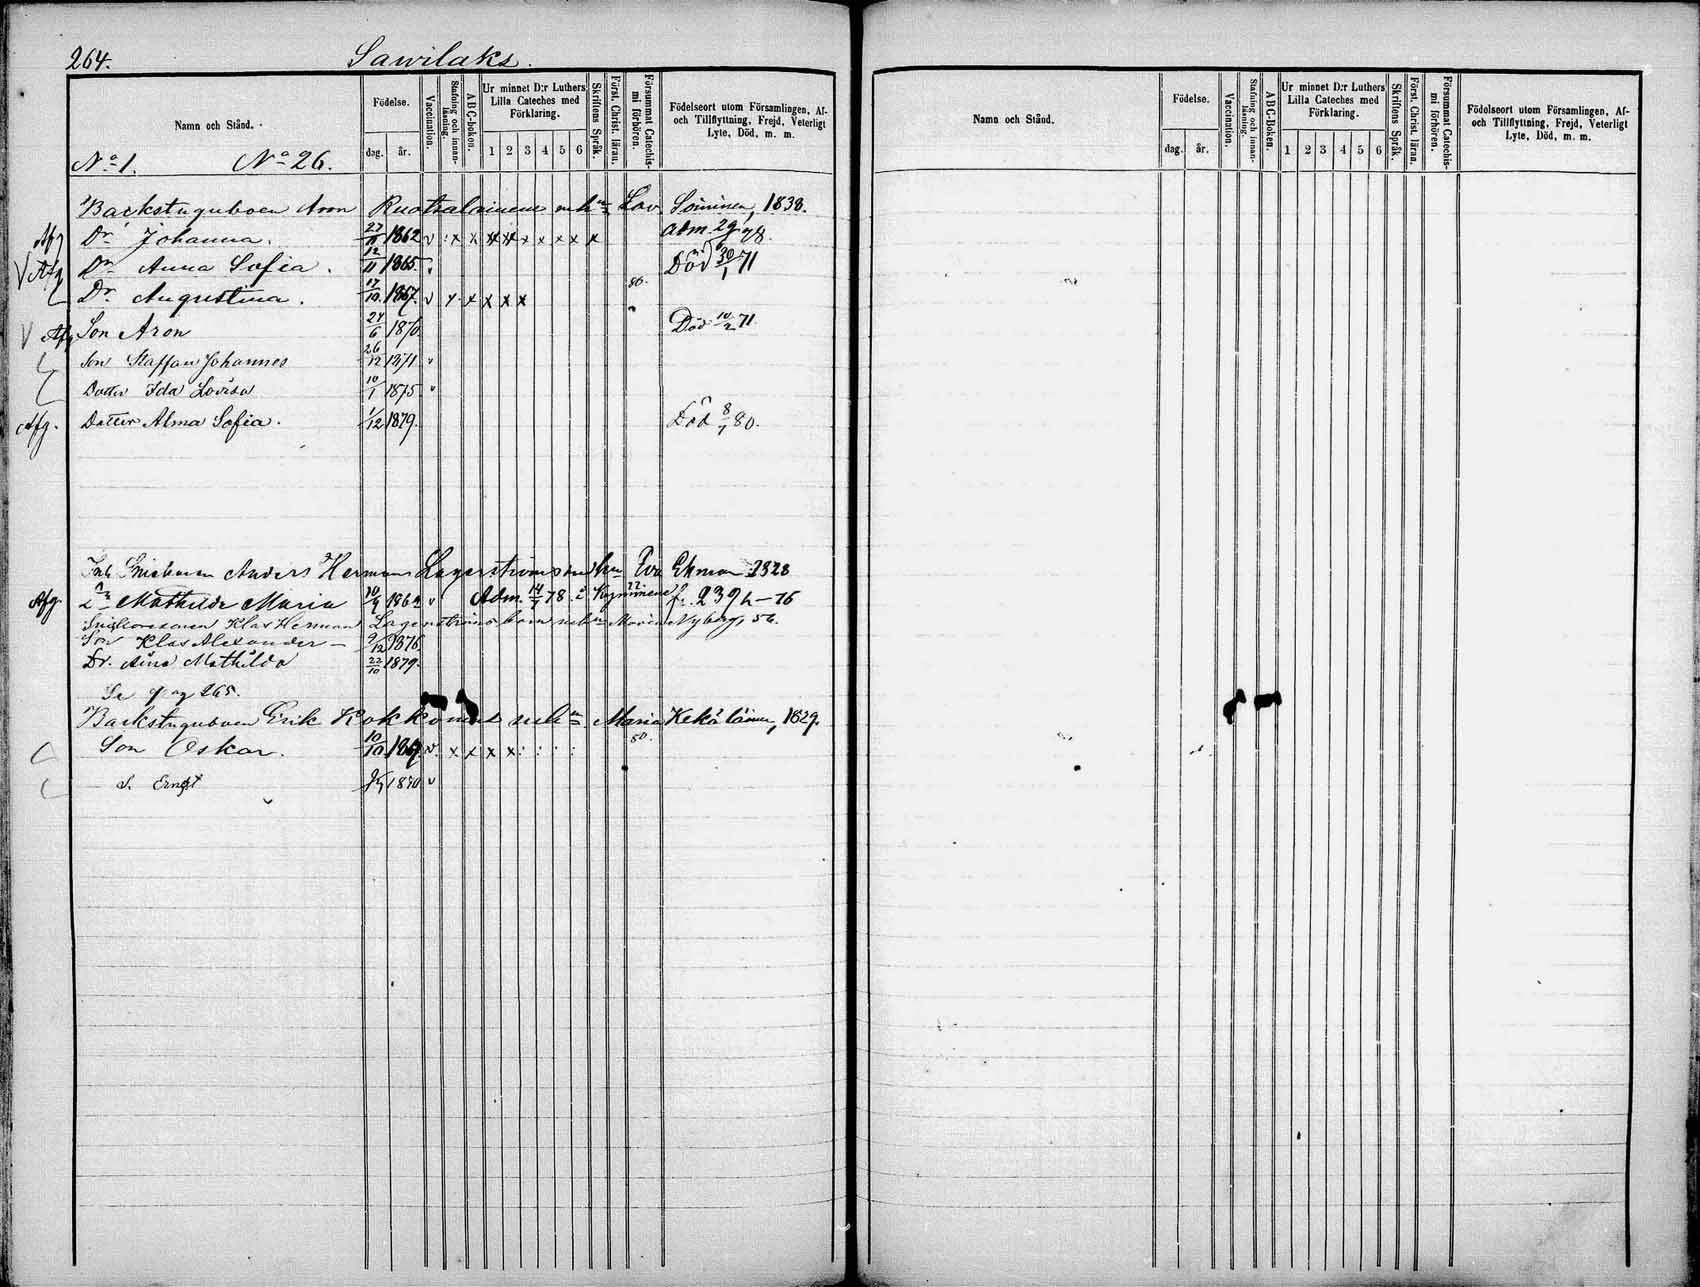 264. Sawilaks.
Namn och Stånd.
Födelse.
dag. år.
Vaccination.
Stafning och innanläsning.
A B C-boken.
Ur minnet D:r Luthers Lilla Cateches med Förklaring.
1 2 3 4 5 6
Skriftens Språk.
Först. Christ. läran.
Försummat Catechismi förhören.
Födelseort utom Församlingen, Af- och Tillflyttning, Frejd, Veterligt Lyte, Död, m. m.
No 1. No 26.
Backstuguboen Aron Ruotsalainens och hu Lov. Soininen, 1838.
Afg Dr Johanna. 27/11 1862 v : x x xx xx x x x x x adm. 29/6 78.
Afg Dr Anna Sofia. 12/11 1865. v Död 30/1 71
Dr Augustina. 17/10 1867. v x x x x x 80.
Afg Son Aron 24/6 1870. Död 10/2 71.
Son Staffan Johannes 26/12 1871 v
Dotter Ida Lovisa 10/1 1875 v
Afg. Dotter Alma Sofia. 1/12 1879. Död 8/1 80.
Anders Hermans Lagerströms hu Eva Ekman 1828
Afg. Dr Mathilda Maria 10/9 1862 v Adm. 14/7 78. i Kymmene f. 239 h-76
Klas Herman Lagerströms Maria Nyberg, 56.
Son Klas Alexander - 9/12 1876
Dr. Aina Mathilda 22/10 1879.
Se pag 265.
Backstuguboen Erik Kokkonens och hu Maria Kekäläinen, 1829.
Son Oskar. 10/10 1867. v. x x x x : : : : 80.
S. Ernst 1870 v
Namn och Stånd.
Födelse.
dag. år.
Vaccination.
Stafning och innanläsning.
A B C-Boken.
Ur minnet D:r Luthers Lilla Cateches med Förklaring.
1 2 3 4 5 6
Skriftens Språk.
Först. Christ. läran.
Försummat Catechismi förhören.
Födelseort utom Församlingen, Af- och Tillflyttning, Frejd, Veterligt Lyte, Död, m. m.